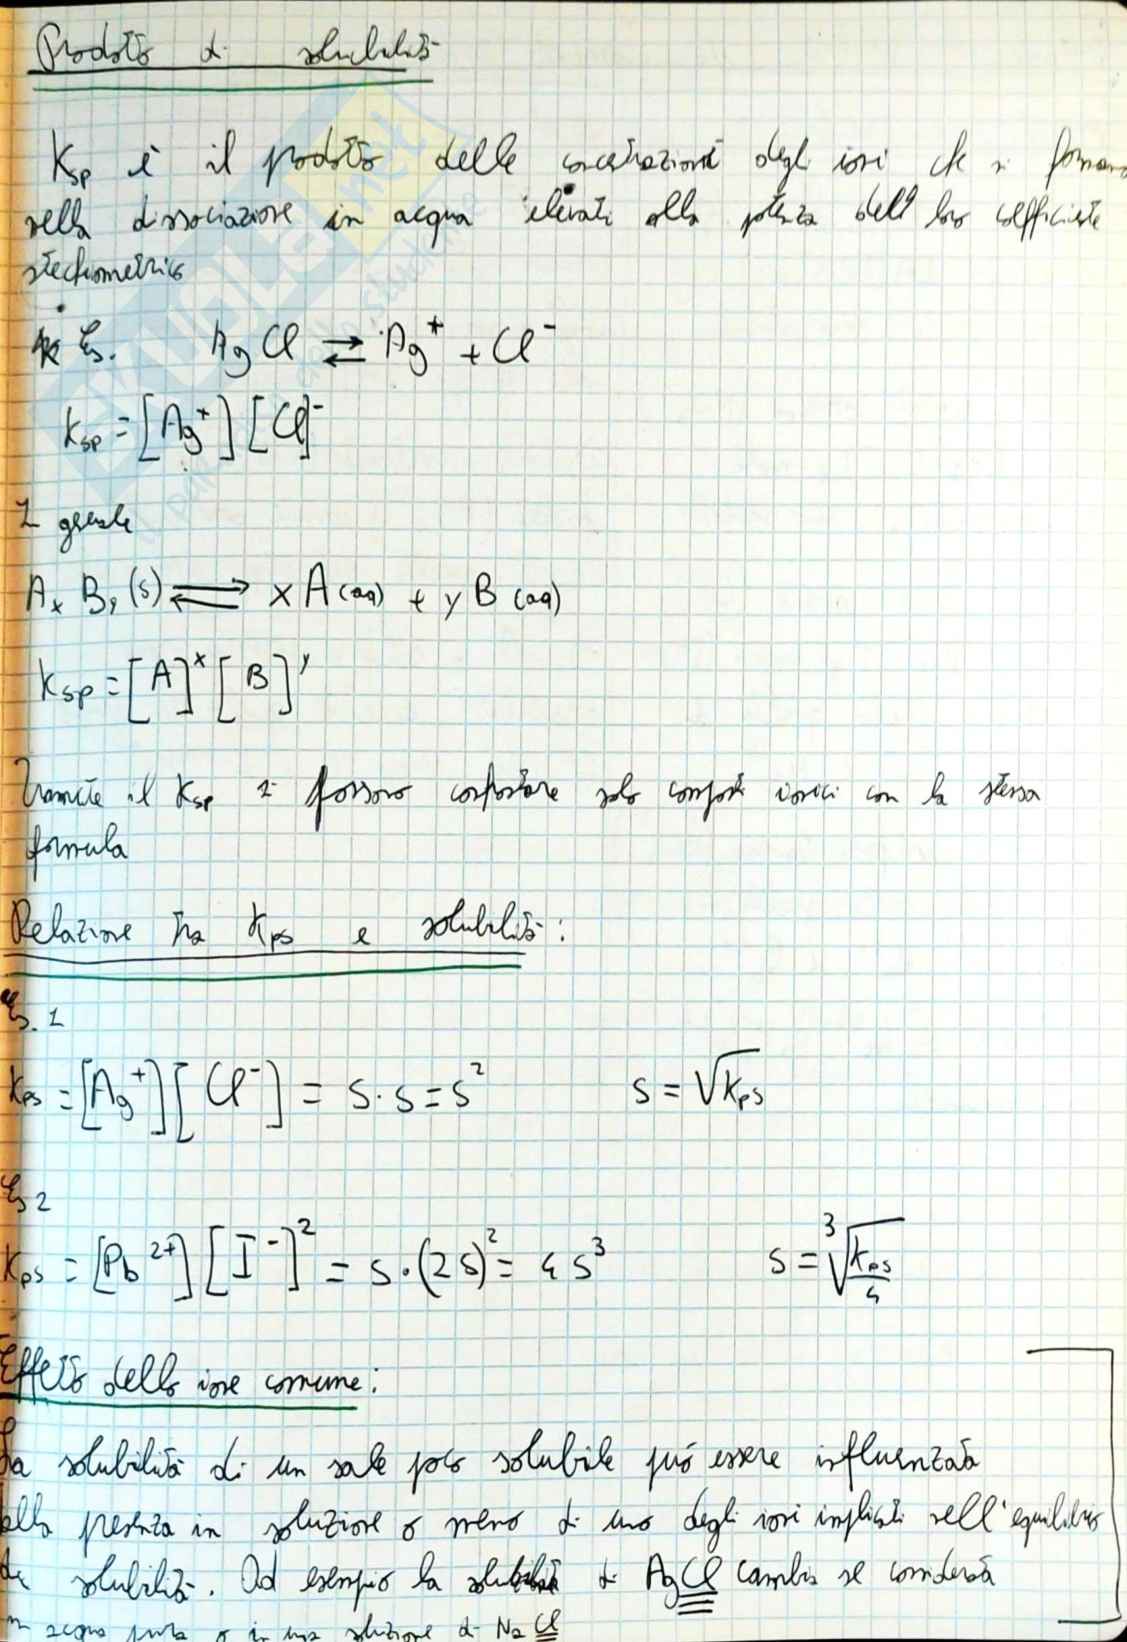 Prodotto di solubilità
Ksp è il prodotto delle concentrazioni degli ioni che si formano
nella dissociazione in acqua elevati alla potenza dell loro coefficiente
stechiometrico
Es. AgCl ⇄ Ag⁺ + Cl⁻
Ksp = [Ag⁺] [Cl]⁻
I generale
AₓBᵧ(s) ⇄ x A(aq) + y B(aq)
Ksp = [A]ˣ [B]ʸ
Tramite il Ksp si possono confrontare solo composti ionici con la stessa
formula
Relazione tra Kps e solubilità:
Es. 1
Kps = [Ag⁺] [Cl⁻] = s · s = s² s = √Kps
Es 2
Kps = [Pb²⁺] [I⁻]² = s · (2s)² = 4s³ s = ³√(Kps/4)
Effetto dello ione comune:
La solubilità di un sale poco solubile può essere influenzata
alla presenza in soluzione o meno di uno degli ioni implicati nell'equilibrio
di solubilità. Ad esempio la solubilità di AgCl cambia se considerata
in acqua pura o in una soluzione di NaCl